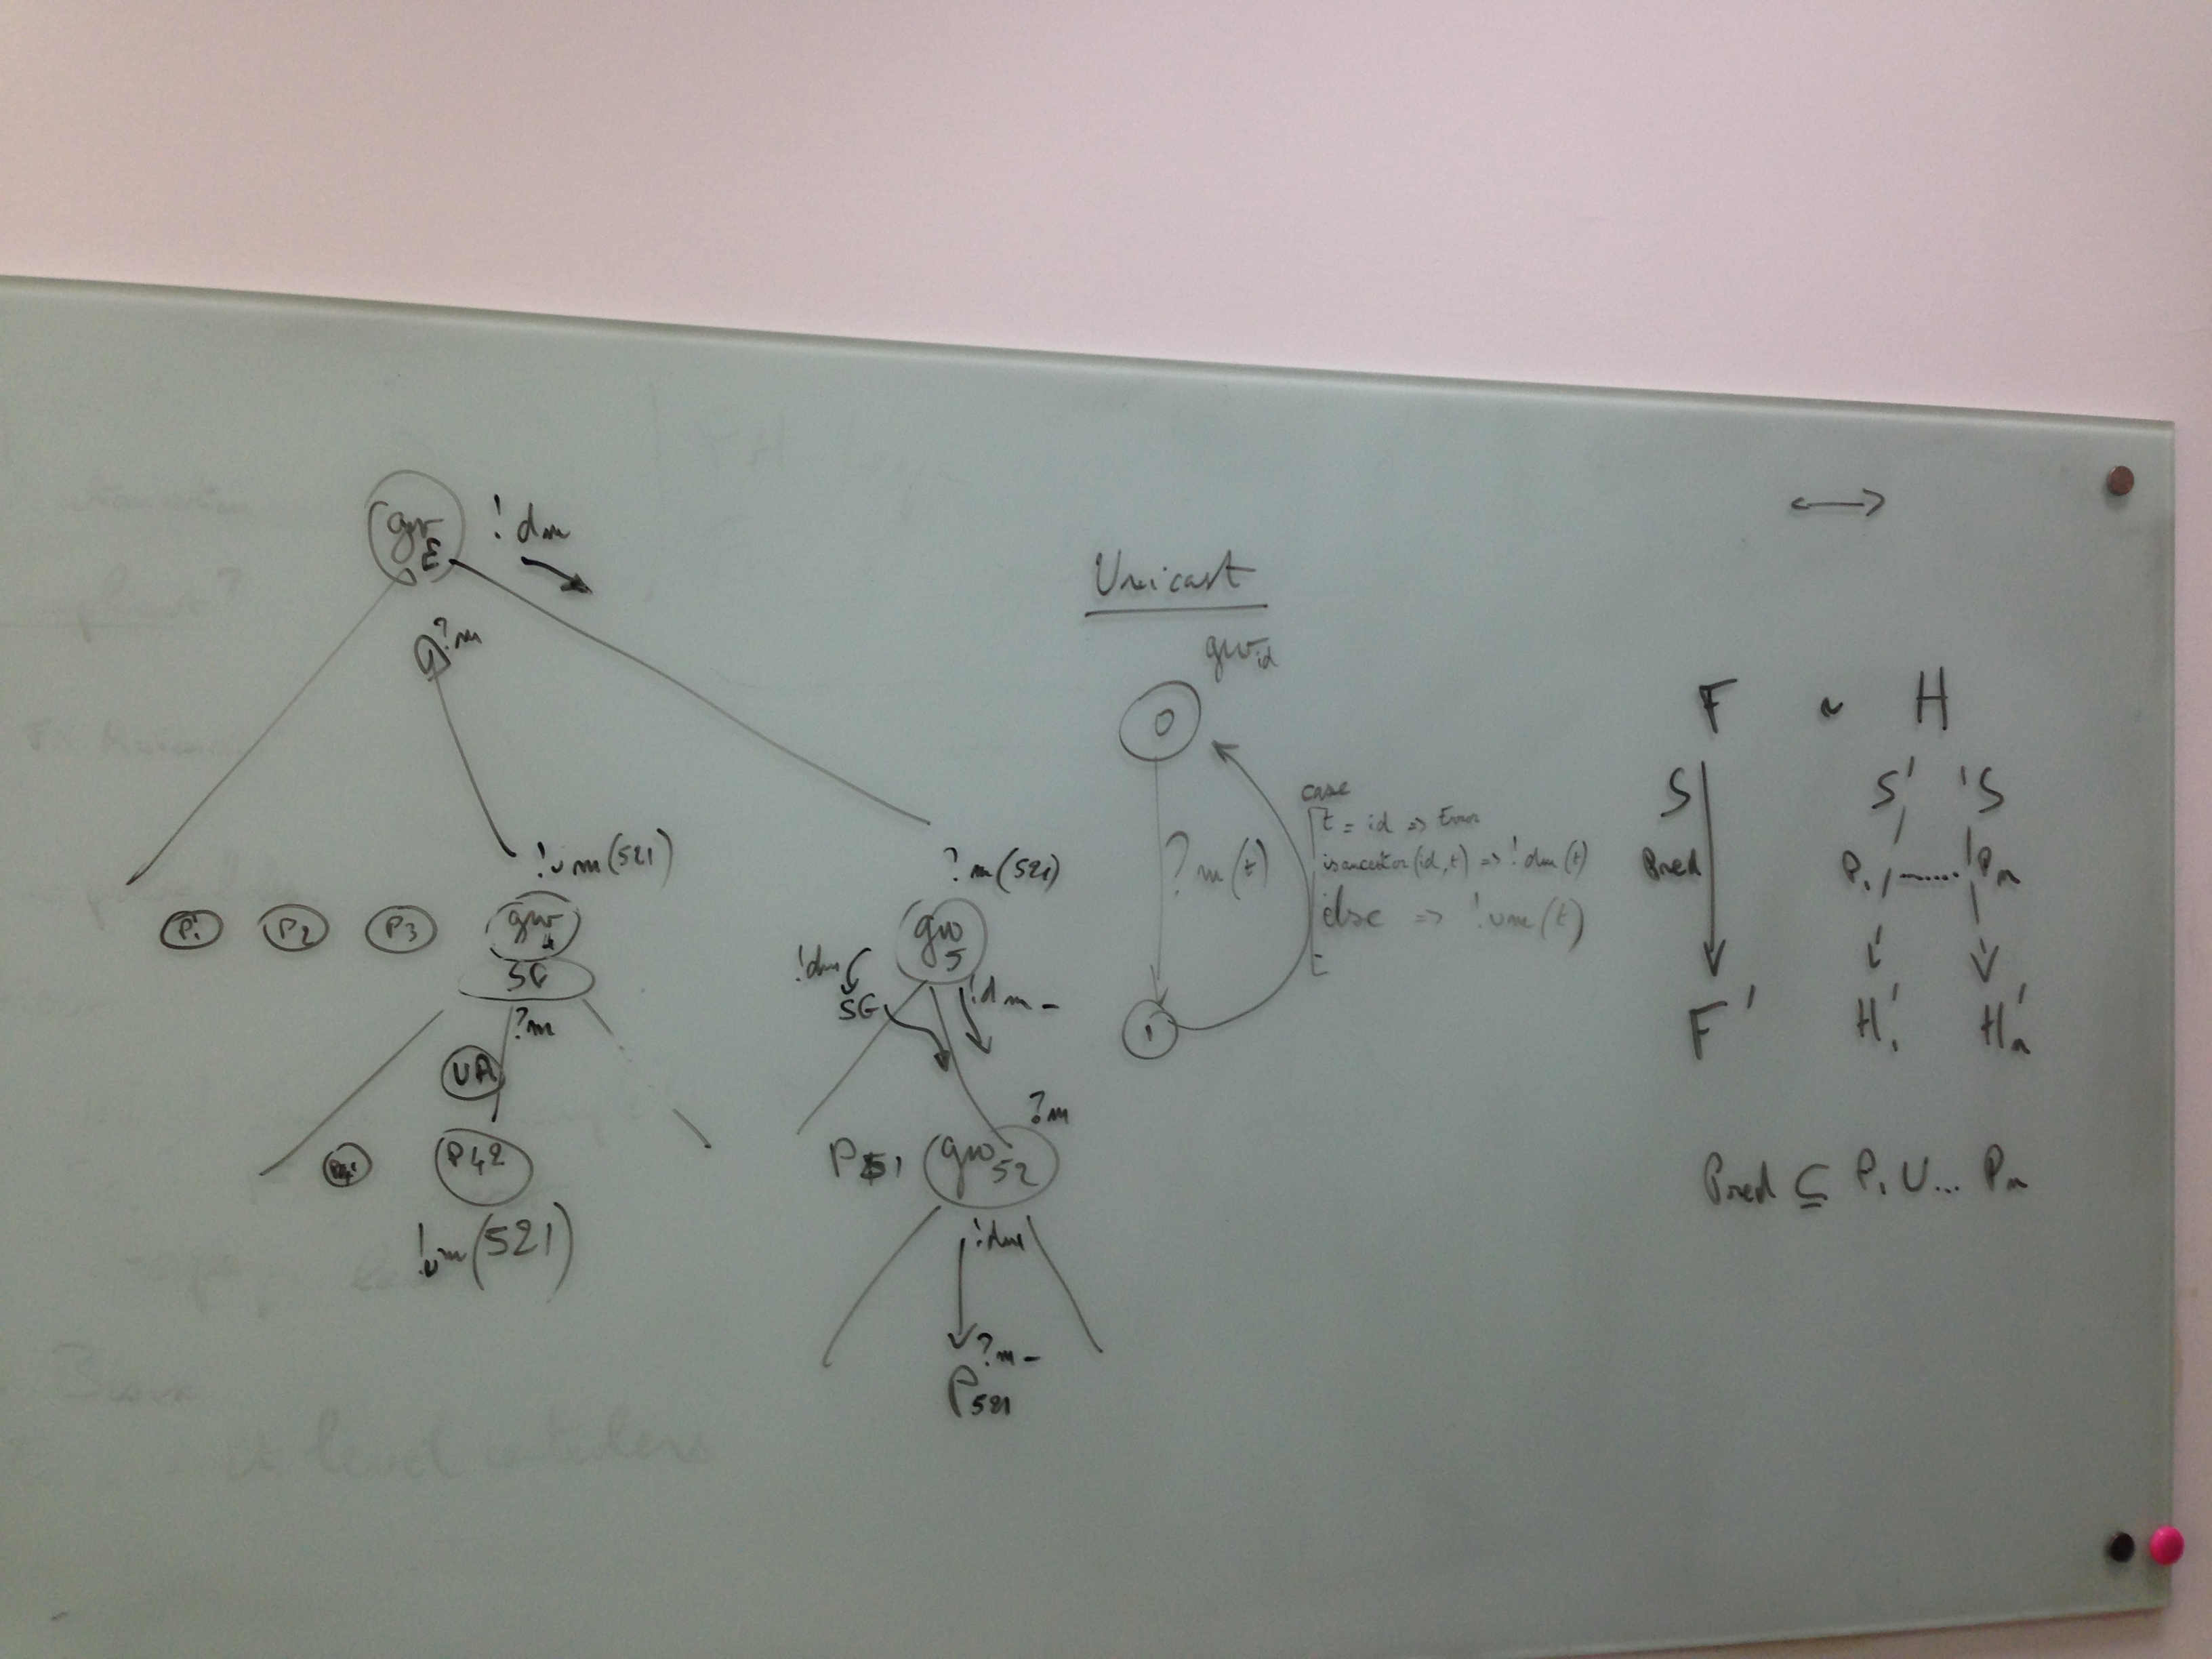 gw E
! dm
?m
!um(521)
P1
P2
P3
gw 4
SG
?m
UA
P42
!um(521)
?m(521)
gw 5
!dm
SG
!dm -
?m
P51
gw 52
!dm
?m -
P521
Unicast
gw id
0
? m(t)
1
case
t = id => Error
isancestor(id,t) => !dm(t)
else => !um(t)
F ~ H
S
S' 'S
Pred
P1 ....... Pn
F'
H'1
H'n
Pred ⊆ P1 ∪ ... Pn